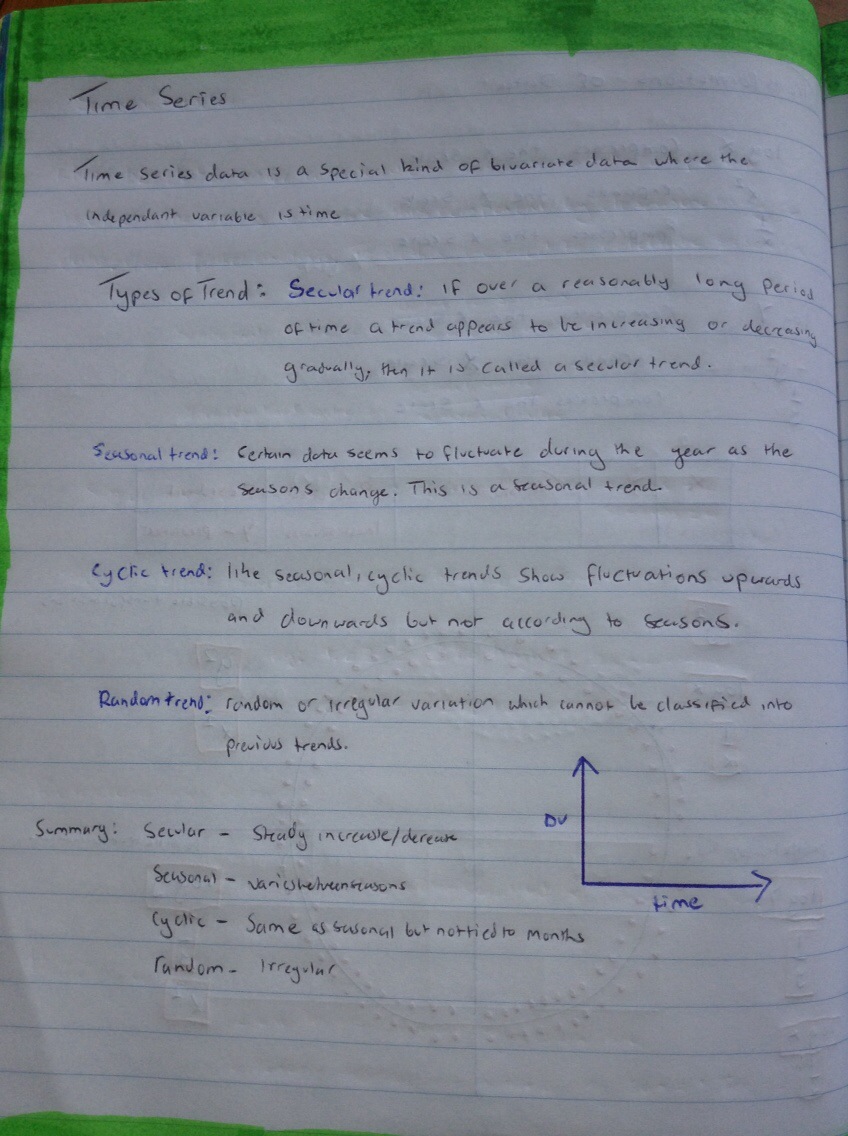 Time Series
Time series data is a special kind of bivariate data where the
independant variable is time
Types of Trend: Secular trend: if over a reasonably long period
of time a trend appears to be increasing or decreasing
gradually, then it is called a secular trend.
Seasonal trend: Certain data seems to fluctuate during the year as the
seasons change. This is a seasonal trend.
Cyclic trend: like seasonal, cyclic trends show fluctuations upwards
and downwards but not according to seasons.
Random trend: random or irregular variation which cannot be classified into
previous trends.
Summary: Secular - Steady increase/derease
DV
Seasonal - varies between seasons
time
Cyclic - Same as sasonal but not tied to months
random - Irregular